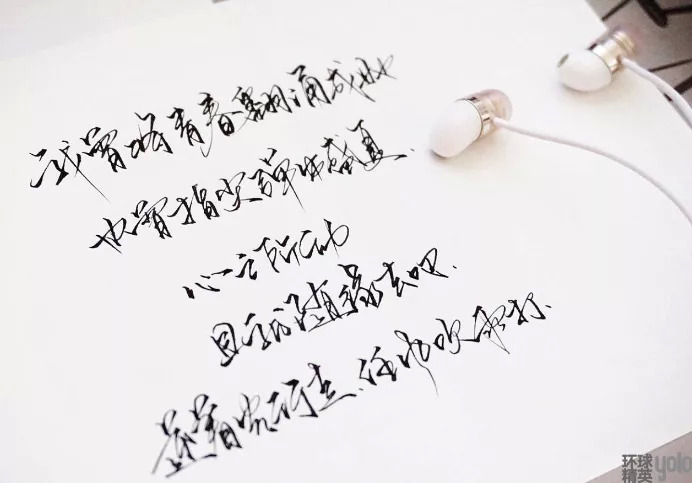 我曾将青春翻涌成她
也曾指尖弹出盛夏
心之所动
且就随缘去吧
逆着光行走,任风吹雨打.
环球
精英
yolo